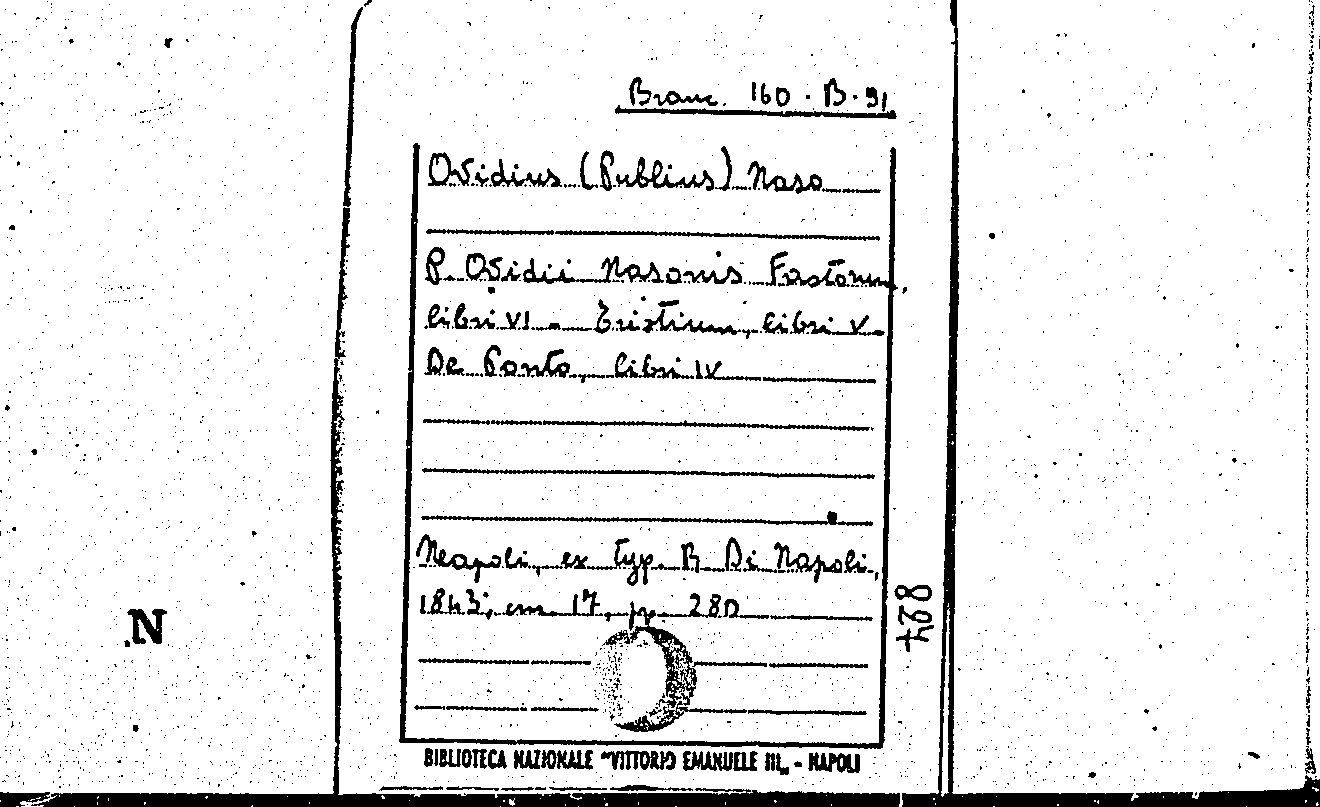 Branc. 160 · B · 91
Ovidius (Publius) Naso
P. Ovidii Nasonis Fastorum,
libri VI - Tristium, libri V -
De Ponto, libri IV
Neapoli, ex typ. R. Di Napoli,
1843; cm. 17, pp. 280
824
N
BIBLIOTECA NAZIONALE "VITTORIO EMANUELE III„ - NAPOLI